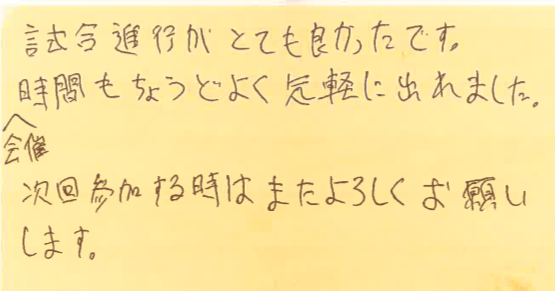 試合進行がとても良かったです。
会催時間もちょうどよく気軽に出れました。
次回参加する時はまたよろしくお願い
します。